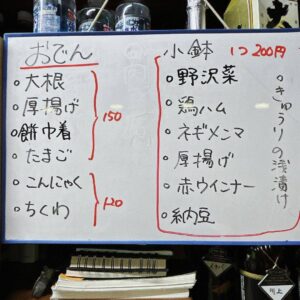 おでん
○大根
○厚揚げ
○餅巾着
○たまご
150
○こんにゃく
○ちくわ
120
小鉢 1つ200円
○野沢菜
○鶏ハム
○ネギメンマ
○厚揚げ
○赤ウインナー
○納豆
○きゅうりの浅漬け
川上